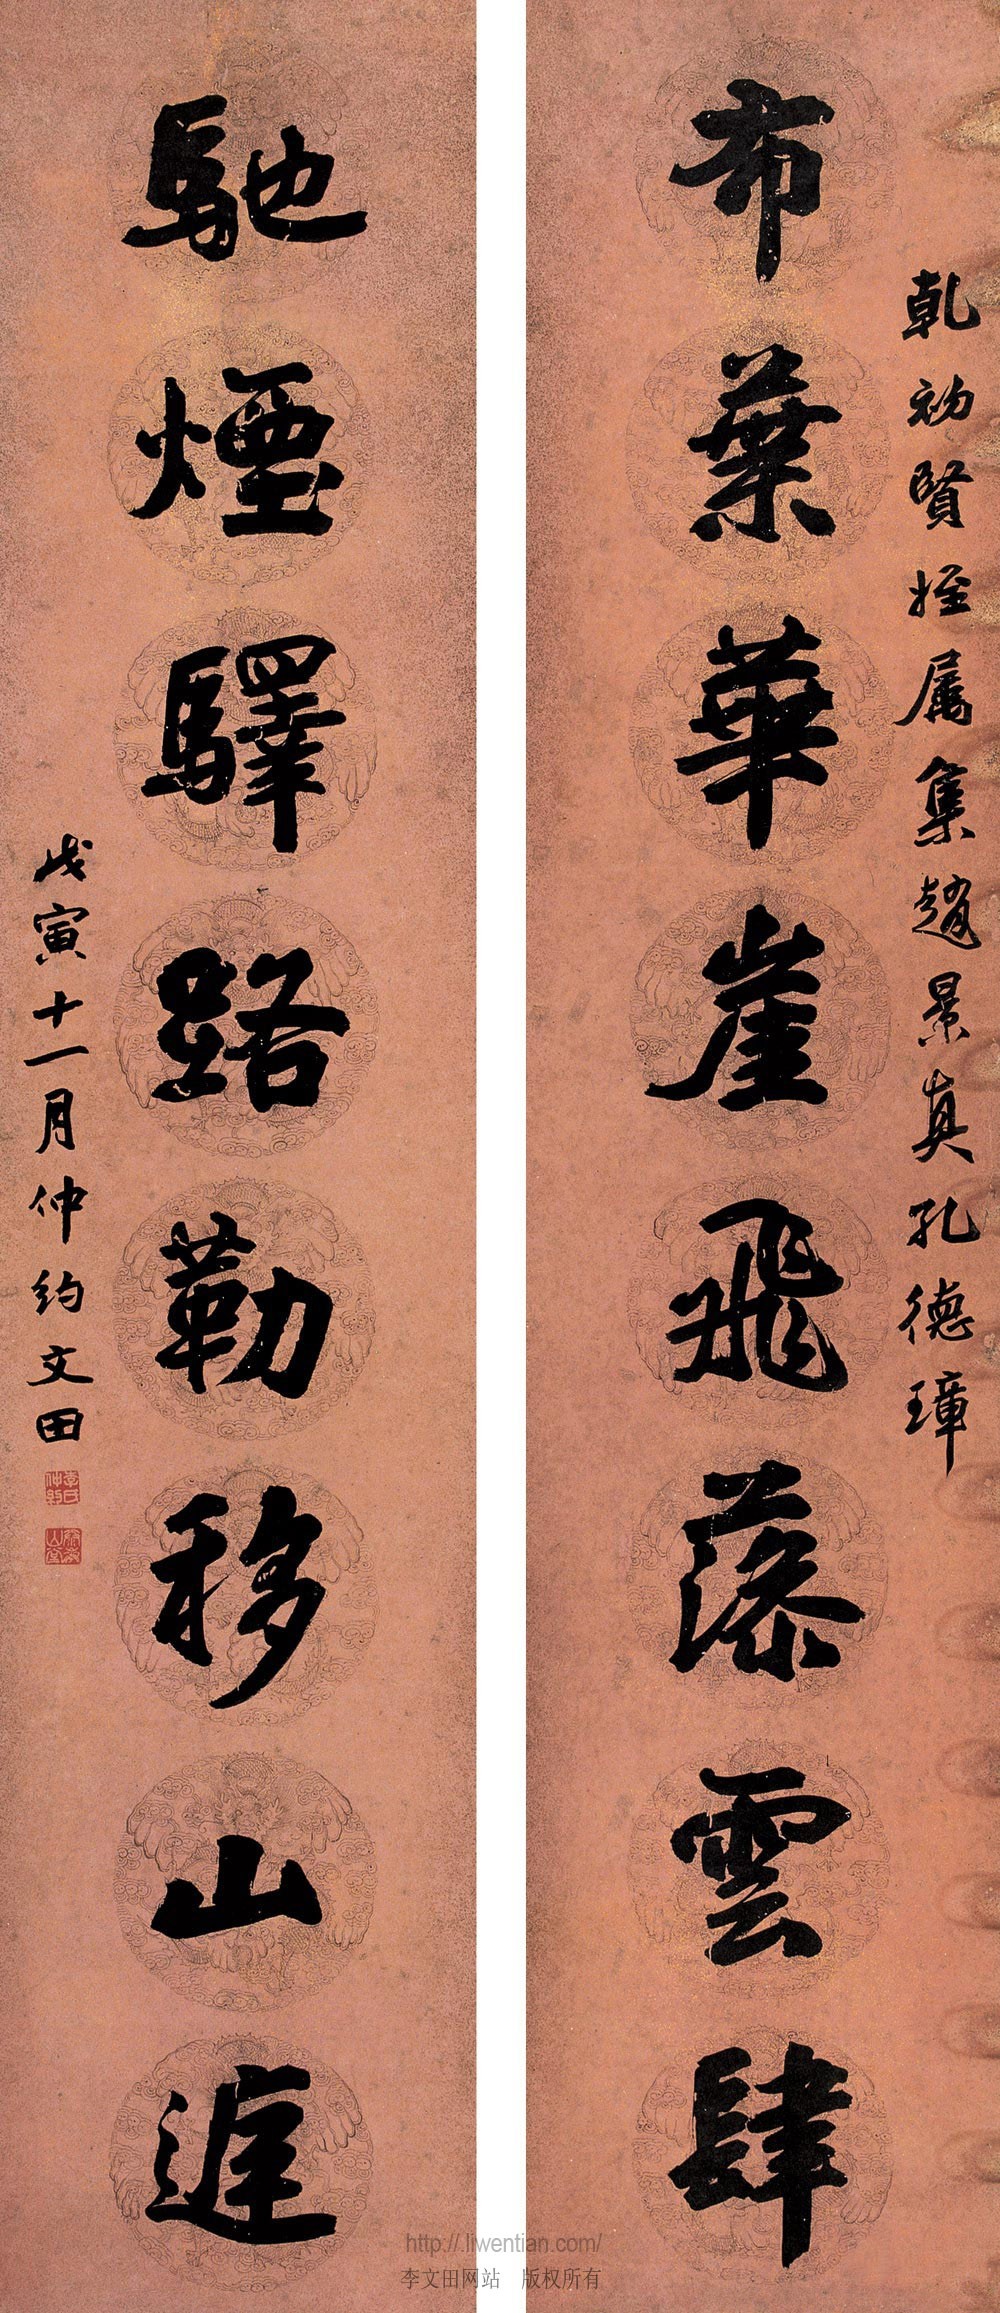 乾初賢姪属集趙景真孔德璋
布葉華崖飛藻雲肆
馳煙驛路勒移山庭
戊寅十一月仲約文田
李氏仲約
http://.liwentian.com/
李文田网站 版权所有